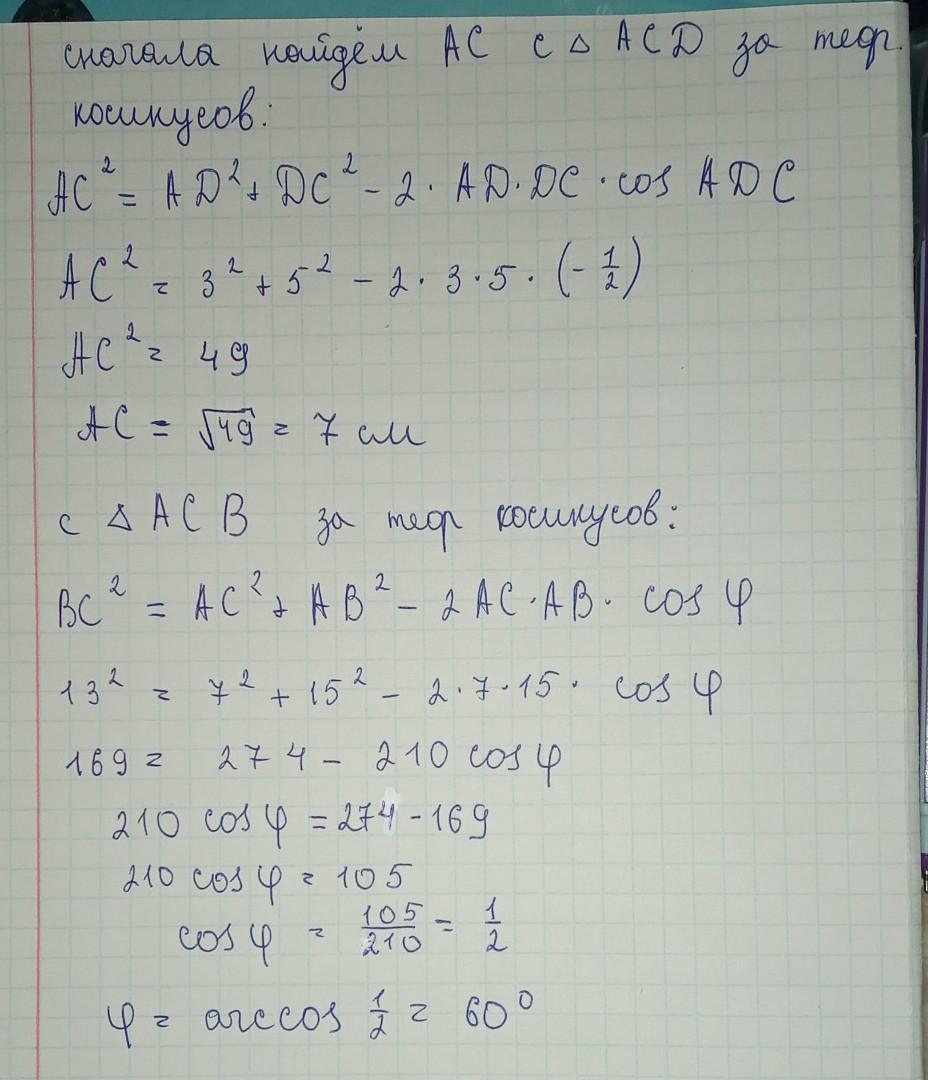 сначала найдём AC с △ ACD за теор.
косинусов:
AC² = AD² + DC² - 2 · AD · DC · cos ADC
AC² = 3² + 5² - 2 · 3 · 5 · (-1/2)
AC² = 49
AC = √49 = 7 см
с △ ACB за теор косинусов:
BC² = AC² + AB² - 2AC · AB · cos φ
13² = 7² + 15² - 2 · 7 · 15 · cos φ
169 = 274 - 210 cos φ
210 cos φ = 274 - 169
210 cos φ = 105
cos φ = 105/210 = 1/2
φ = arccos 1/2 = 60°